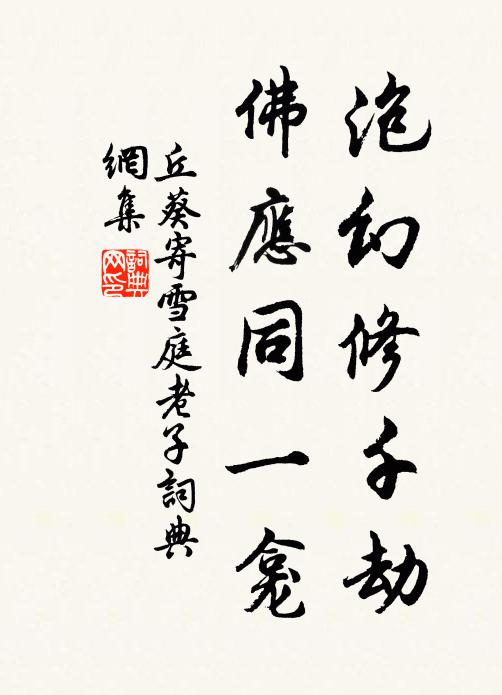 泡幻修千劫
佛應同一龕
丘葵寄雪庭老子詞典
網集
詞典
网印